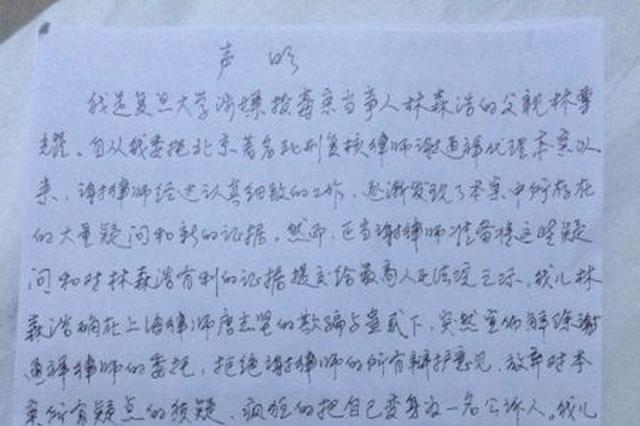 声明
我是复旦大学涉嫌投毒案当事人林森浩的父亲林尊
耀。自从我委托北京著名死刑复核律师谢通祥代理本案以
来，谢律师经过认真细致的工作，逐渐发现了本案中所存在
的大量疑问和新的证据。然而，正当谢律师准备将这些疑
问和对林森浩有利的证据提交给最高人民法院之际，我儿林
森浩确在上海律师唐志坚的欺骗与蛊惑下，突然宣佈解除谢
通祥律师的委托，拒绝谢律师的所有辩护意见，放弃对本
案所有疑点的质疑，疯狂的把自己变身为一名公诉人。我儿